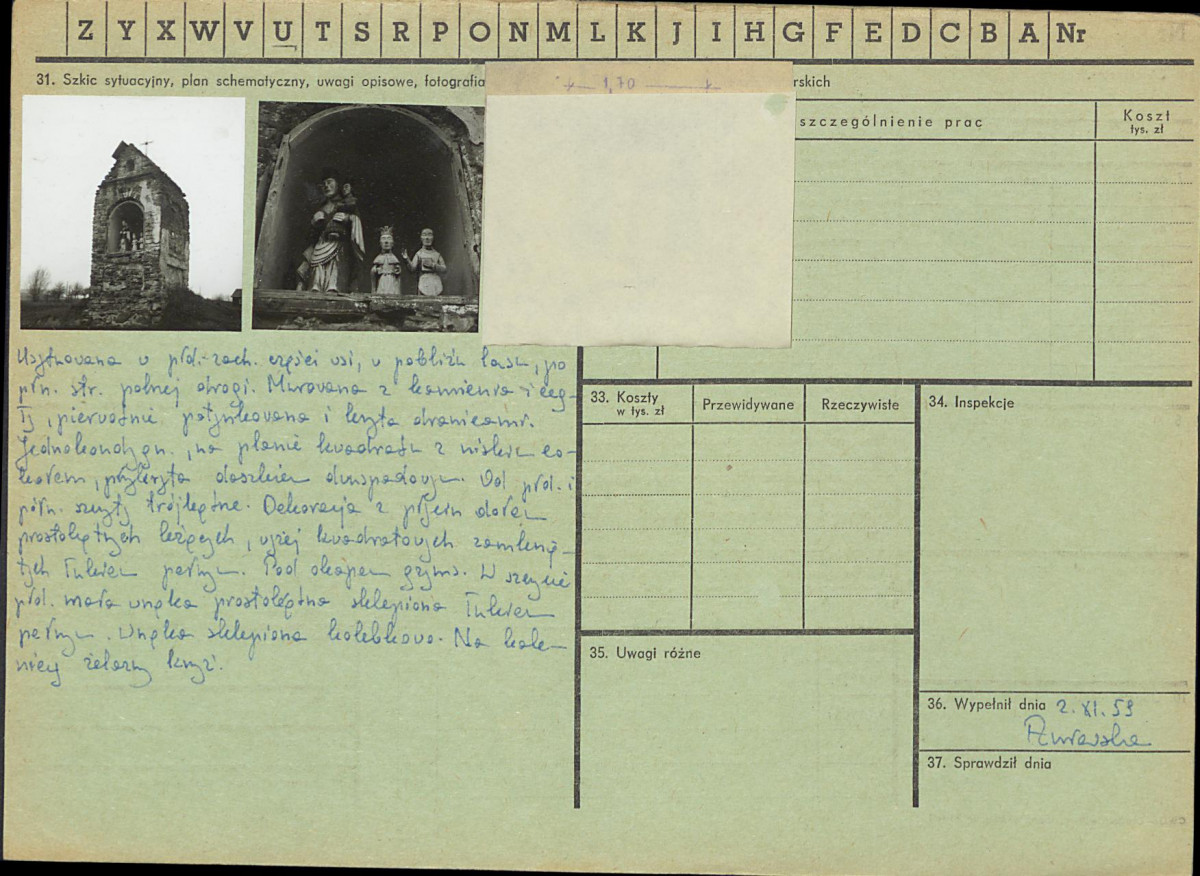 Z Y X W V U T S R P O N M L K J I H G F E D C B A Nr
31. Szkic sytuacyjny, plan schematyczny, uwagi opisowe, fotografia
1,70
rskich
szczególnienie prac
Koszt
tys. zł
Usytuowana w płd.-zach. części wsi, w pobliżu lasu, po
płn. str. polnej drogi. Murowana z kamienia i ceg-
ły, pierwotnie potynkowana i kryta dranicami.
Jednokondygn., na planie kwadratu z niskim co-
kołem, przykryta daszkiem dwuspadowym. Od płd. i
półn. szczyty trójkątne. Dekoracja z płycin dołem
prostokątnych leżących, wyżej kwadratowych zamknię-
tych łukiem pełnym. Pod okapem gzyms. W szczycie
płd. mała wnęka prostokątna sklepiona łukiem
pełnym. Wnęka sklepiona kolebkowo. Na kale-
nicy żelazny krzyż.
33. Koszty
w tys. zł
Przewidywane
Rzeczywiste
34. Inspekcje
35. Uwagi różne
36. Wypełnił dnia 2.XI.59
37. Sprawdził dnia